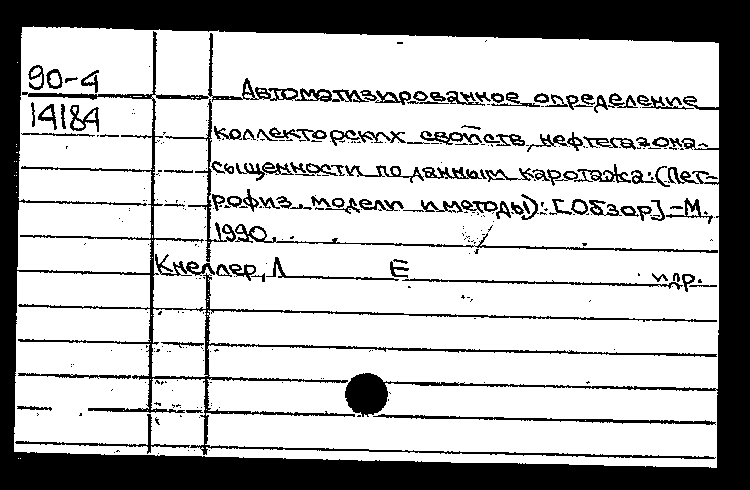 90-4
Автоматизированное определение
14184
коллекторских свойств, нефтегазона-
сыщенности по данным каротажа: (Пет-
рофиз. модели и методы): [Обзор] -М.,
1990.
Кнеллер, Л Е и др.